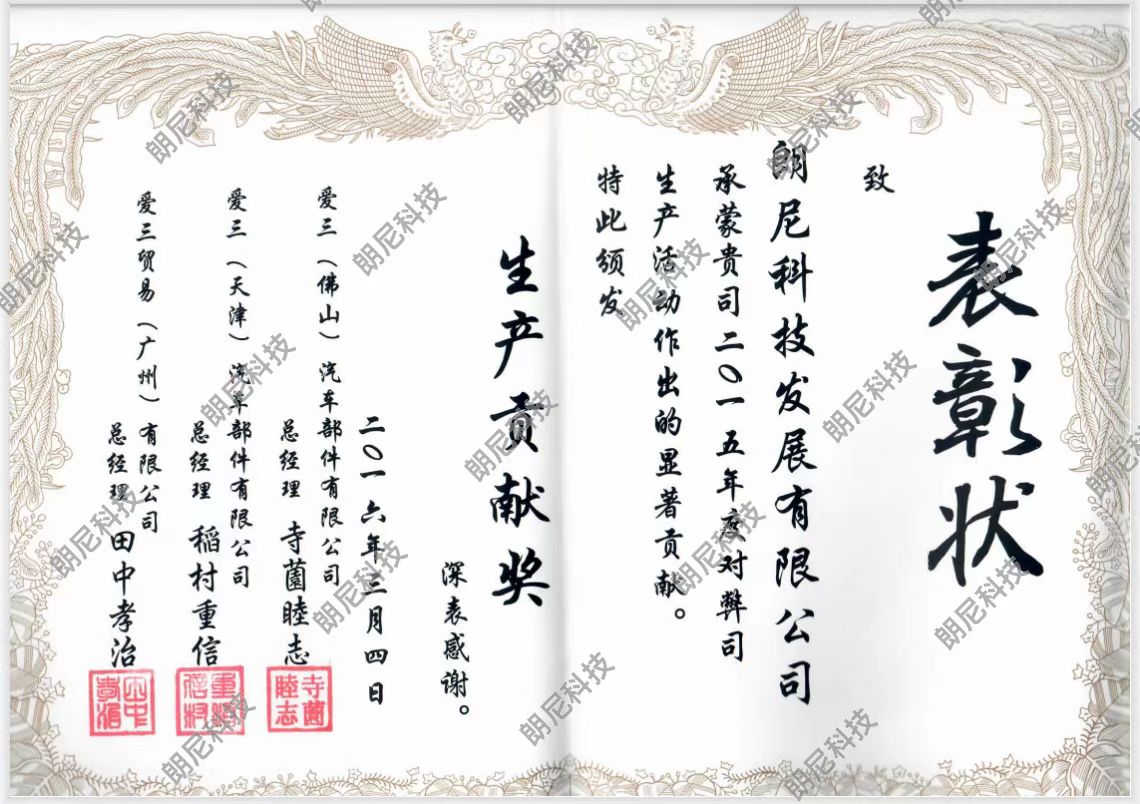 表彰状
致
朗尼科技发展有限公司
承蒙贵司二〇一五年度对弊司
生产活动作出的显著贡献。
特此颁发
生产贡献奖
深表感谢。
二〇一六年三月四日
爱三（佛山）汽车部件有限公司
总经理 寺薗睦志
爱三（天津）汽车部件有限公司
总经理 稲村重信
爱三贸易（广州）有限公司
总经理 田中孝治
寺薗
睦志
朗尼科技